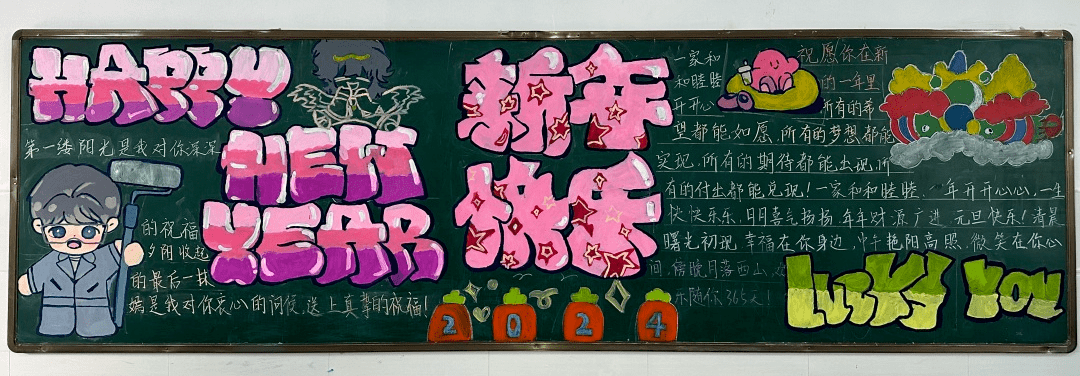 HAPPY
NEW
YEAR
第一缕阳光是我对你深深
的祝福
夕阳收起
的最后一抹
嫣是我对你衷心的问候,送上真挚的祝福!
新年
快乐
2024
一家和
和睦睦
开开心
祝愿你在新
的一年里
所有的希
望都能如愿,所有的梦想都能
实现,所有的期待都能出现,所
有的付出都能兑现!一家和和睦睦,一年开开心心,一生
快快乐乐,日日喜气扬扬,年年财源广进,元旦快乐!清晨
曙光初现,幸福在你身边,中午艳阳高照,微笑在你心
间,傍晚月落西山,欢
乐随你365天!
LUCKY YOU